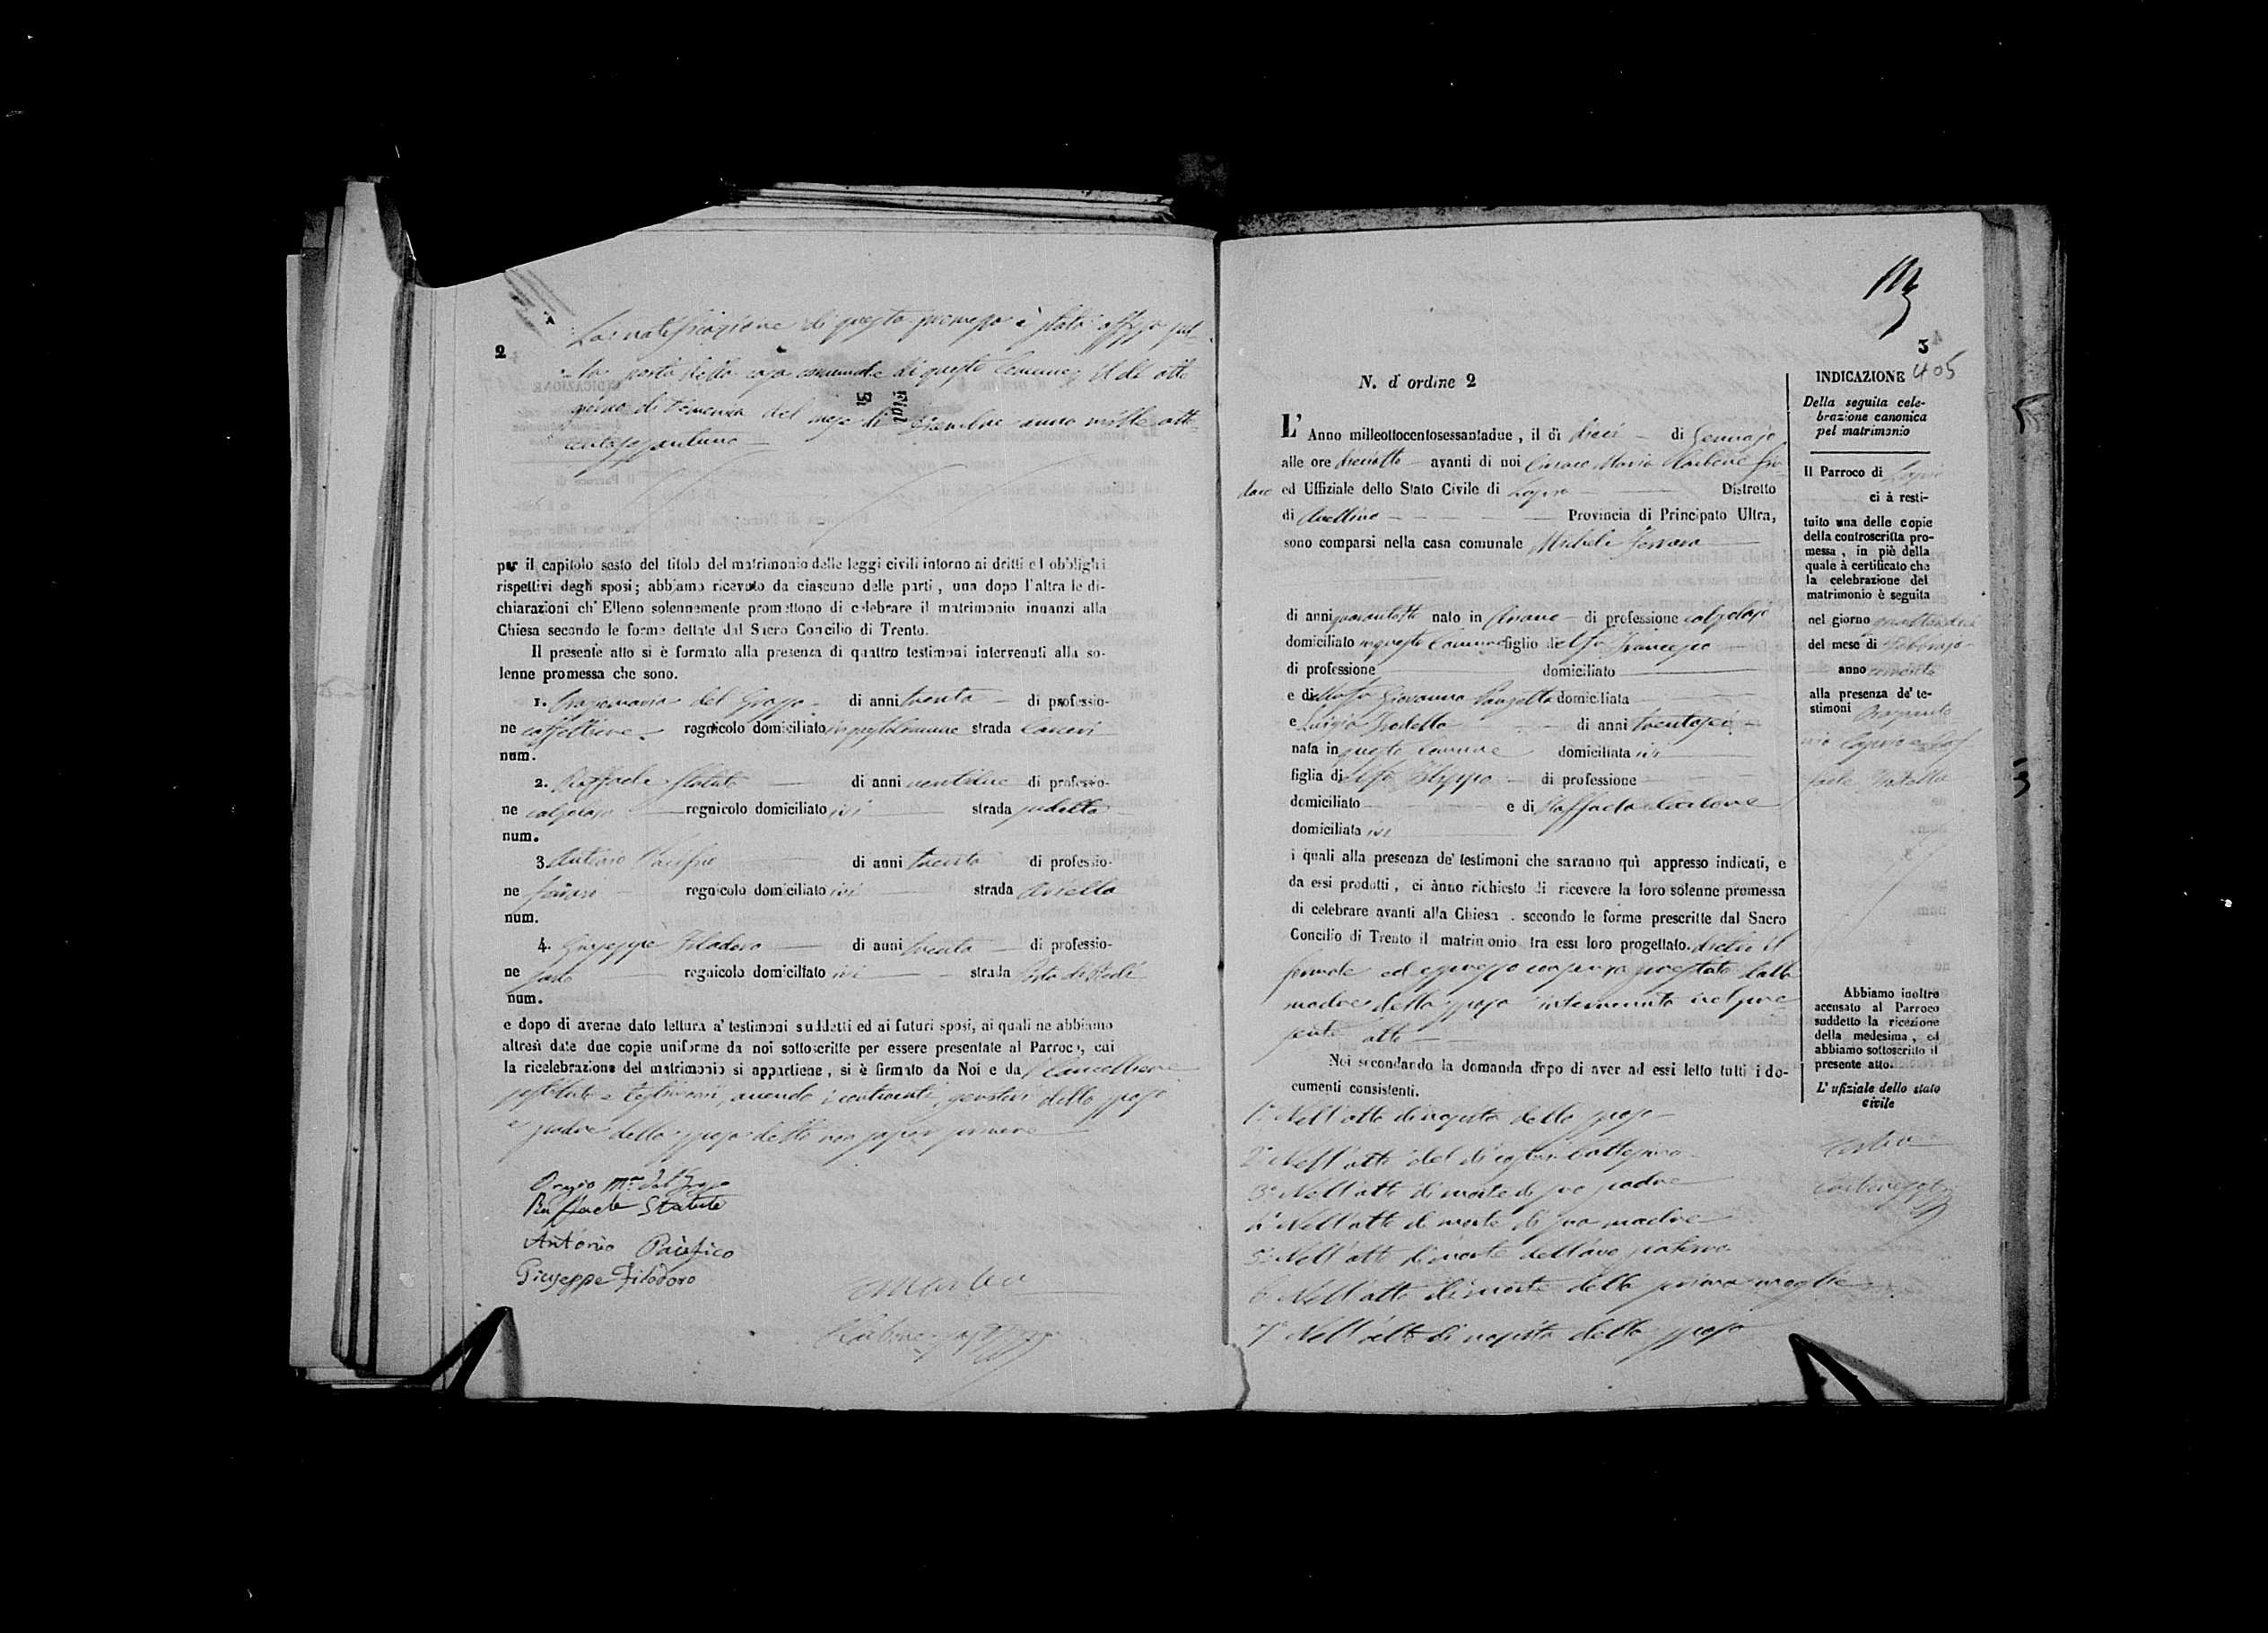 2
La notificazione di questa promessa è stata affissa sul-
la porta della casa comunale di questo Comune il dì otto
giorno di Domenica del mese di Dicembre anno mille otto
centosessantuno
per il capitolo sesto del titolo del matrimonio delle leggi civili intorno ai dritti ed obblighi
rispettivi degli sposi; abbiamo ricevuto da ciascuno delle parti, una dopo l'altra le di-
chiarazioni ch' Elleno solennemente promettono di celebrare il matrimonio innanzi alla
Chiesa secondo le forme dettate dal Sacro Concilio di Trento.
Il presente atto si è formato alla presenza di quattro testimoni intervenuti alla so-
lenne promessa che sono.
1. Oraziomaria del Grosso di anni trenta di professio-
ne caffettiere regnicolo domiciliato in questo Comune strada
num.
2. Raffaele Statuto di anni ventidue di professio-
ne calzolajo regnicolo domiciliato ivi strada sudetta
num.
3. Antonio Pacifico di anni trenta di professio-
ne regnicolo domiciliato ivi strada
num.
4. Giuseppe Filodoro di anni trenta di professio-
ne regnicolo domiciliato ivi strada
num.
e dopo di averne dato lettura a' testimoni suddetti ed ai futuri sposi, ai quali ne abbiamo
altresì date due copie uniforme da noi sottoscritte per essere presentate al Parroco, cui
la ricelebrazione del matrimonio si appartiene, si è firmato da Noi e da Cancelliere
sostituto e testimonii, avendo i contraenti, genitori dello sposo
e padre della sposa detto non saper scrivere
Orazio Mª del Grosso
Raffaele Statuto
Antonio Pacifico
Giuseppe Filodoro
3
405
N. d' ordine 2
L' Anno milleottocentosessantadue, il dì dieci di Gennajo
alle ore dieciotto avanti di noi Maria Sin-
daco ed Uffiziale dello Stato Civile di Distretto
di Avellino Provincia di Principato Ultra,
sono comparsi nella casa comunale Michele Ferrara
di anni quarantotto nato in di professione calzolajo
domiciliato in questo Comune figlio di Francesco
di professione domiciliato
e di Giovanna domiciliata
e Luigia di anni trentasei
nata in questo Comune domiciliata ivi
figlia di Filippo di professione
domiciliato e di Raffaela
domiciliata ivi
i quali alla presenza de' testimoni che saranno quì appresso indicati, e
da essi prodotti, ci ànno richiesto di ricevere la loro solenne promessa
di celebrare avanti alla Chiesa secondo le forme prescritte dal Sacro
Concilio di Trento il matrimonio tra essi loro progettato. dietro il
formale ed espresso consenso prestato dalla
madre della sposa intervenuta nel pre-
sente atto
Noi secondando la domanda dopo di aver ad essi letto tutti i do-
cumenti consistenti.
1° Nell'atto di nascita dello sposo
2° Nell'atto del di costui battesimo
3° Nell'atto di morte di suo padre
4° Nell'atto di morte di sua madre
5° Nell'atto di morte dell'avo paterno
6° Nell'atto di morte della prima moglie
7° Nell'atto di nascita della sposa
INDICAZIONE
Della seguita cele-
brazione canonica
pel matrimonio
Il Parroco di
ci à resti-
tuito una delle copie
della controscritta pro-
messa, in piè della
quale à certificato che
la celebrazione del
matrimonio è seguita
nel giorno
del mese di Febbrajo
anno
alla presenza de' te-
stimoni
Abbiamo inoltre
accusato al Parroco
suddetto la ricezione
della medesima, ed
abbiamo sottoscritto il
presente atto.
L' ufiziale dello stato
civile